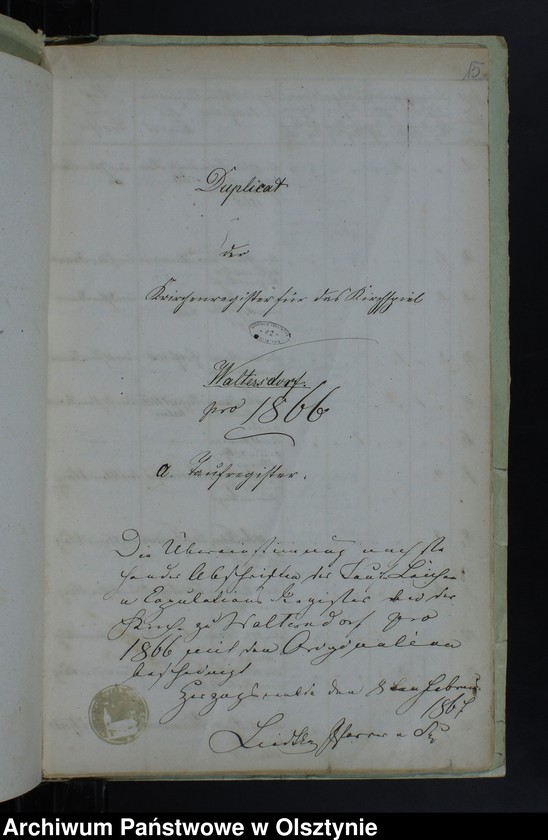 15
Duplicat
der
Kirchenregister für das Kirchspiel
Waltersdorf.
pro 1866
a. Taufregister.
Die Übereinstimmung nachste
hender Abschriften der Tauf Leichen
u Copulations Register der
Kirche zu Waltersdorf pro
1866 mit den Originalien
bescheinigt
den 8ten Februar
1867
Pfarrer
Archiwum Państwowe w Olsztynie